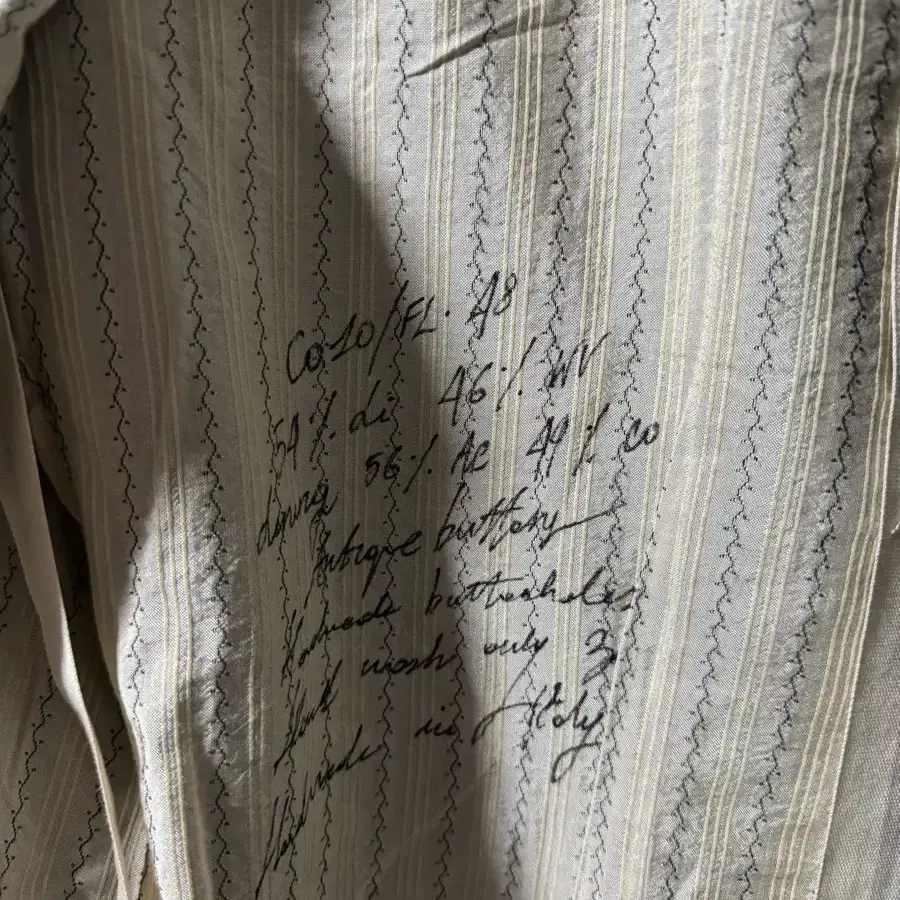 Co10/FL. 48
54% Li 46% WV
Lining 56% AC 44% CO
Antique buttons
Handmade buttonholes
Hand wash only 3
Handmade in Italy